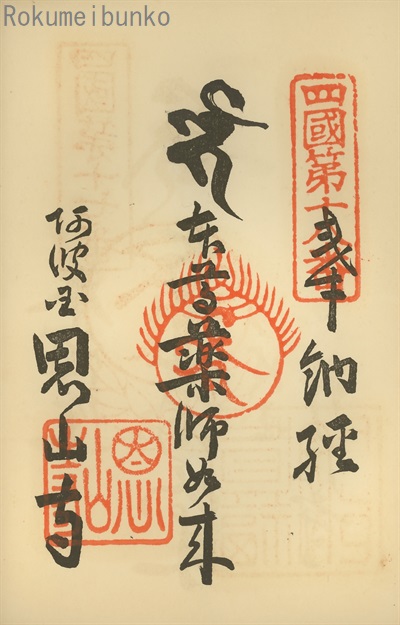 Rokumeibunko
四國第十八番
奉納經
本尊藥師如来
阿波国恩山寺